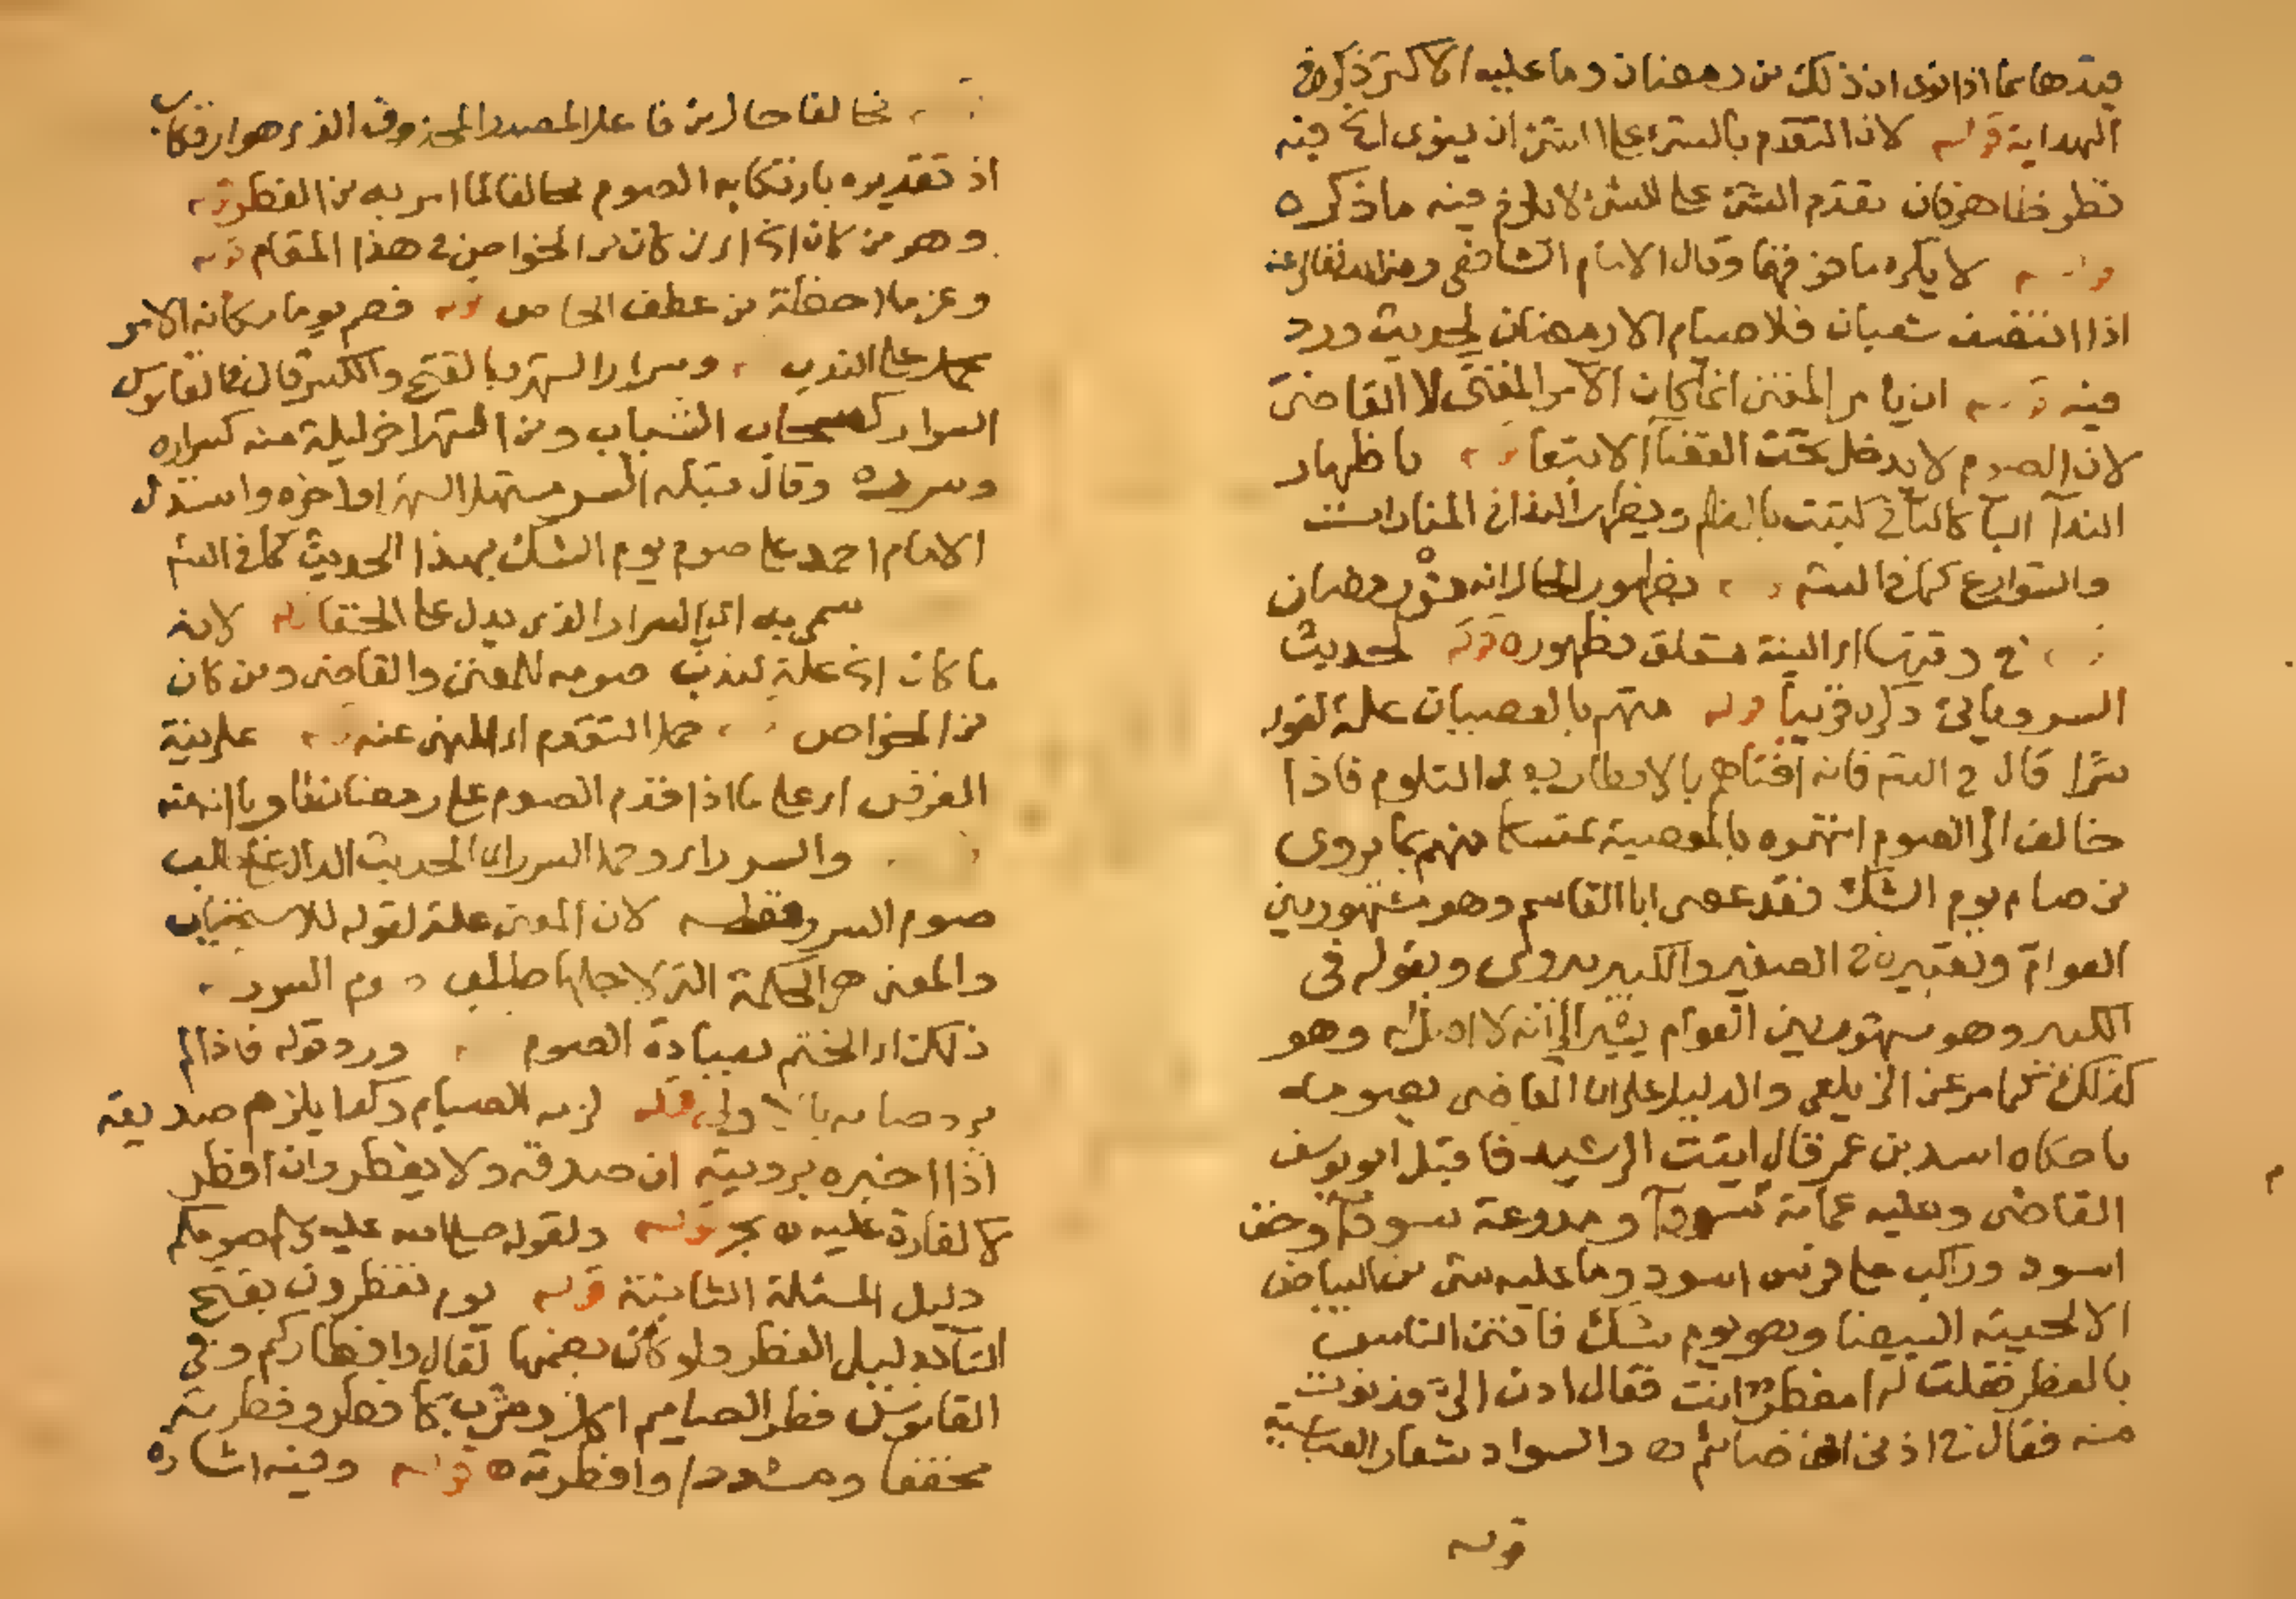 قيدها بما اذا نوى ان ذلك من رمضان وما عليه الاكثر ذكره في
الهداية قوله لان التقدم بالشئ على الشئ ان ينوى الخ فيه
نظر ظاهر فان تقدم الشئ على الشئ لا يلزم فيه ما ذكره
قوله لا يكره ما هو فيها وقال الامام الشافعى رضى الله تعالى عنه
اذا انتصف شعبان فلا صيام الا رمضان لحديث ورد
فيه قوله ان يامر المفتى انما كان الآمر المفتى لا القاضى
لان الصوم لا يدخل تحت القضآ الا تبعا باظهار
الندآ البآ كالبآ في كتبت بالقلم ويظهر النداء في المنارات
والشوارع كما في الشم بظهور الحال انه من رمضان
في وقتها اى النية متعلق بظهوره قوله لحديث
السر وياتى ذكره قريبا قوله متهم بالعصيان علة لقوله
سرا قال في الشم فانه افتاهم بالافطار بعد التلوم فاذا
خالف الى الصوم اتهموه بالمعصية تمسكا منهم بما يروى
من صام يوم الشك فقد عصى ابا القاسم وهو مشهور بين
العوام وتعبيره في الصغير والكبير بيروى وبقوله في
الكبير وهو مشهور بين العوام يشير الى انه لا اصل له وهو
كذلك كما مر عن الزيلعى والدليل على ان القاضى يصومه
ما حكاه اسد بن عمر قال اتيت الرشيد فاقبل ابو يوسف
القاضى وعليه عمامة سودآ ومدرعة سودآ وخف
اسود وراكب على فرس اسود وما عليه شئ من البياض
الا لحيته البيضا وهو يوم شك فافتى الناس
بالفطر فقلت له امفطر انت فقال ادن الى فدنوت
منه فقال في اذنى انى صائم ه والسواد شعار العباسية
قوله
مخالفا حال من فاعل المصدر المحذوف الذى هو ارتكاب
اذ تقديره بارتكابه الصوم مخالفا لما امر به من الفطر قوله
وهو من كان الخ اى من كان من الخواص في هذا المقام قوله
وعزما لاحظة من عطف الخاص قوله فصم يوما مكانه الامر
محمول على الندب وسرار الشهر بالفتح والكسر قال في القاموس
السرار كسحاب السباب ومن الشهر اخر ليلة منه كسراره
وسرره وقال قبله السر مستهل الشهر او اخره واستدل
الامام احمد على صوم يوم الشك بهذا الحديث كما في الشم
سمى به اى السرار الذى يدل على الخفا قوله لانه
ما كان الخ علة لندب صومه للمفتى والقاضى ومن كان
من الخواص حمل التقدم اى المنهى عنه على نية
الفرض اى على ما اذا قدم الصوم على رمضان ناويا انه منه
والسرر اى وحمل السرر اى الحديث الدال على طلب
صوم السرر فقط لان المعنى علة لقوله للاستحباب
والمعنى هو الحكمة التى لاجلها طلب صوم السرر
ذلك اى الختم بعبادة الصوم ورد قوله فاذا لم
يرد صامه بالاولى قوله لزمه الصيام وكذا يلزم صديقه
اذا اخبره برويته ان صدقه ولا يفطر وان افطر
لا كفارة عليه ه بحر قوله ولقوله صلى الله عليه وسلم صومكم
دليل المسئلة الثانية قوله يوم تفطرون بفتح
التآ بدليل الفطر ولو كان بضمها لقال وافطاركم وفي
القاموس فطر الصايم اكل وشرب كافطر وفطرته
مخففا ومشددا وافطرته ه قوله وفيه اشارة